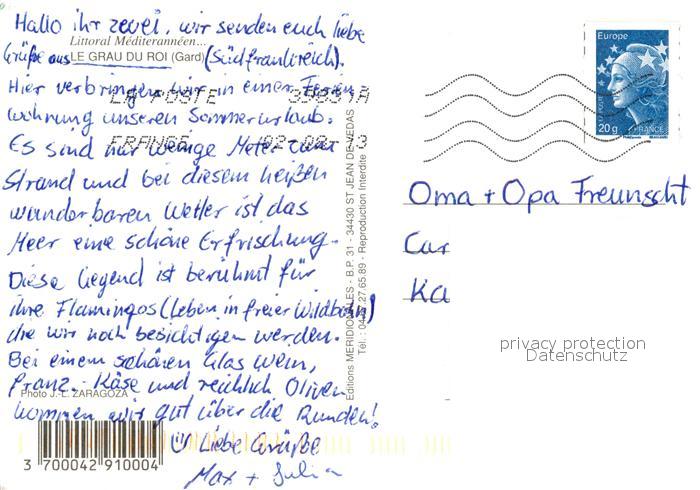 Hallo ihr zwei, wir senden euch liebe
Littoral Méditerannéen...
Grüße aus LE GRAU DU ROI (Gard) (Südfrankreich).
Hier verbringen wir in einer Ferien
LA POSTE 39831A
wohnung unseren Sommerurlaub.
FRANCE
Es sind nur wenige Meter zum
Strand und bei diesem heißen
wunderbaren Wetter ist das
Meer eine schöne Erfrischung.
Diese Gegend ist berühmt für
ihre Flamingos (leben in freier Wildbahn)
die wir noch besichtigen werden.
Bei einem schönen Glas Wein,
franz. Käse und reichlich Oliven
Photo J.-L. ZARAGOZA
kommen wir gut über die Runden!
Liebe Grüße
Max + Julia
3 700042 910004
Editions MERIDIONALES - B.P. 31 - 34430 ST JEAN DE VEDAS
Tél. : 0467.27.65.89 - Reproduction Interdite
Europe
20g
FRANCE
Oma + Opa Freunscht
Car
Ka
privacy protection
Datenschutz